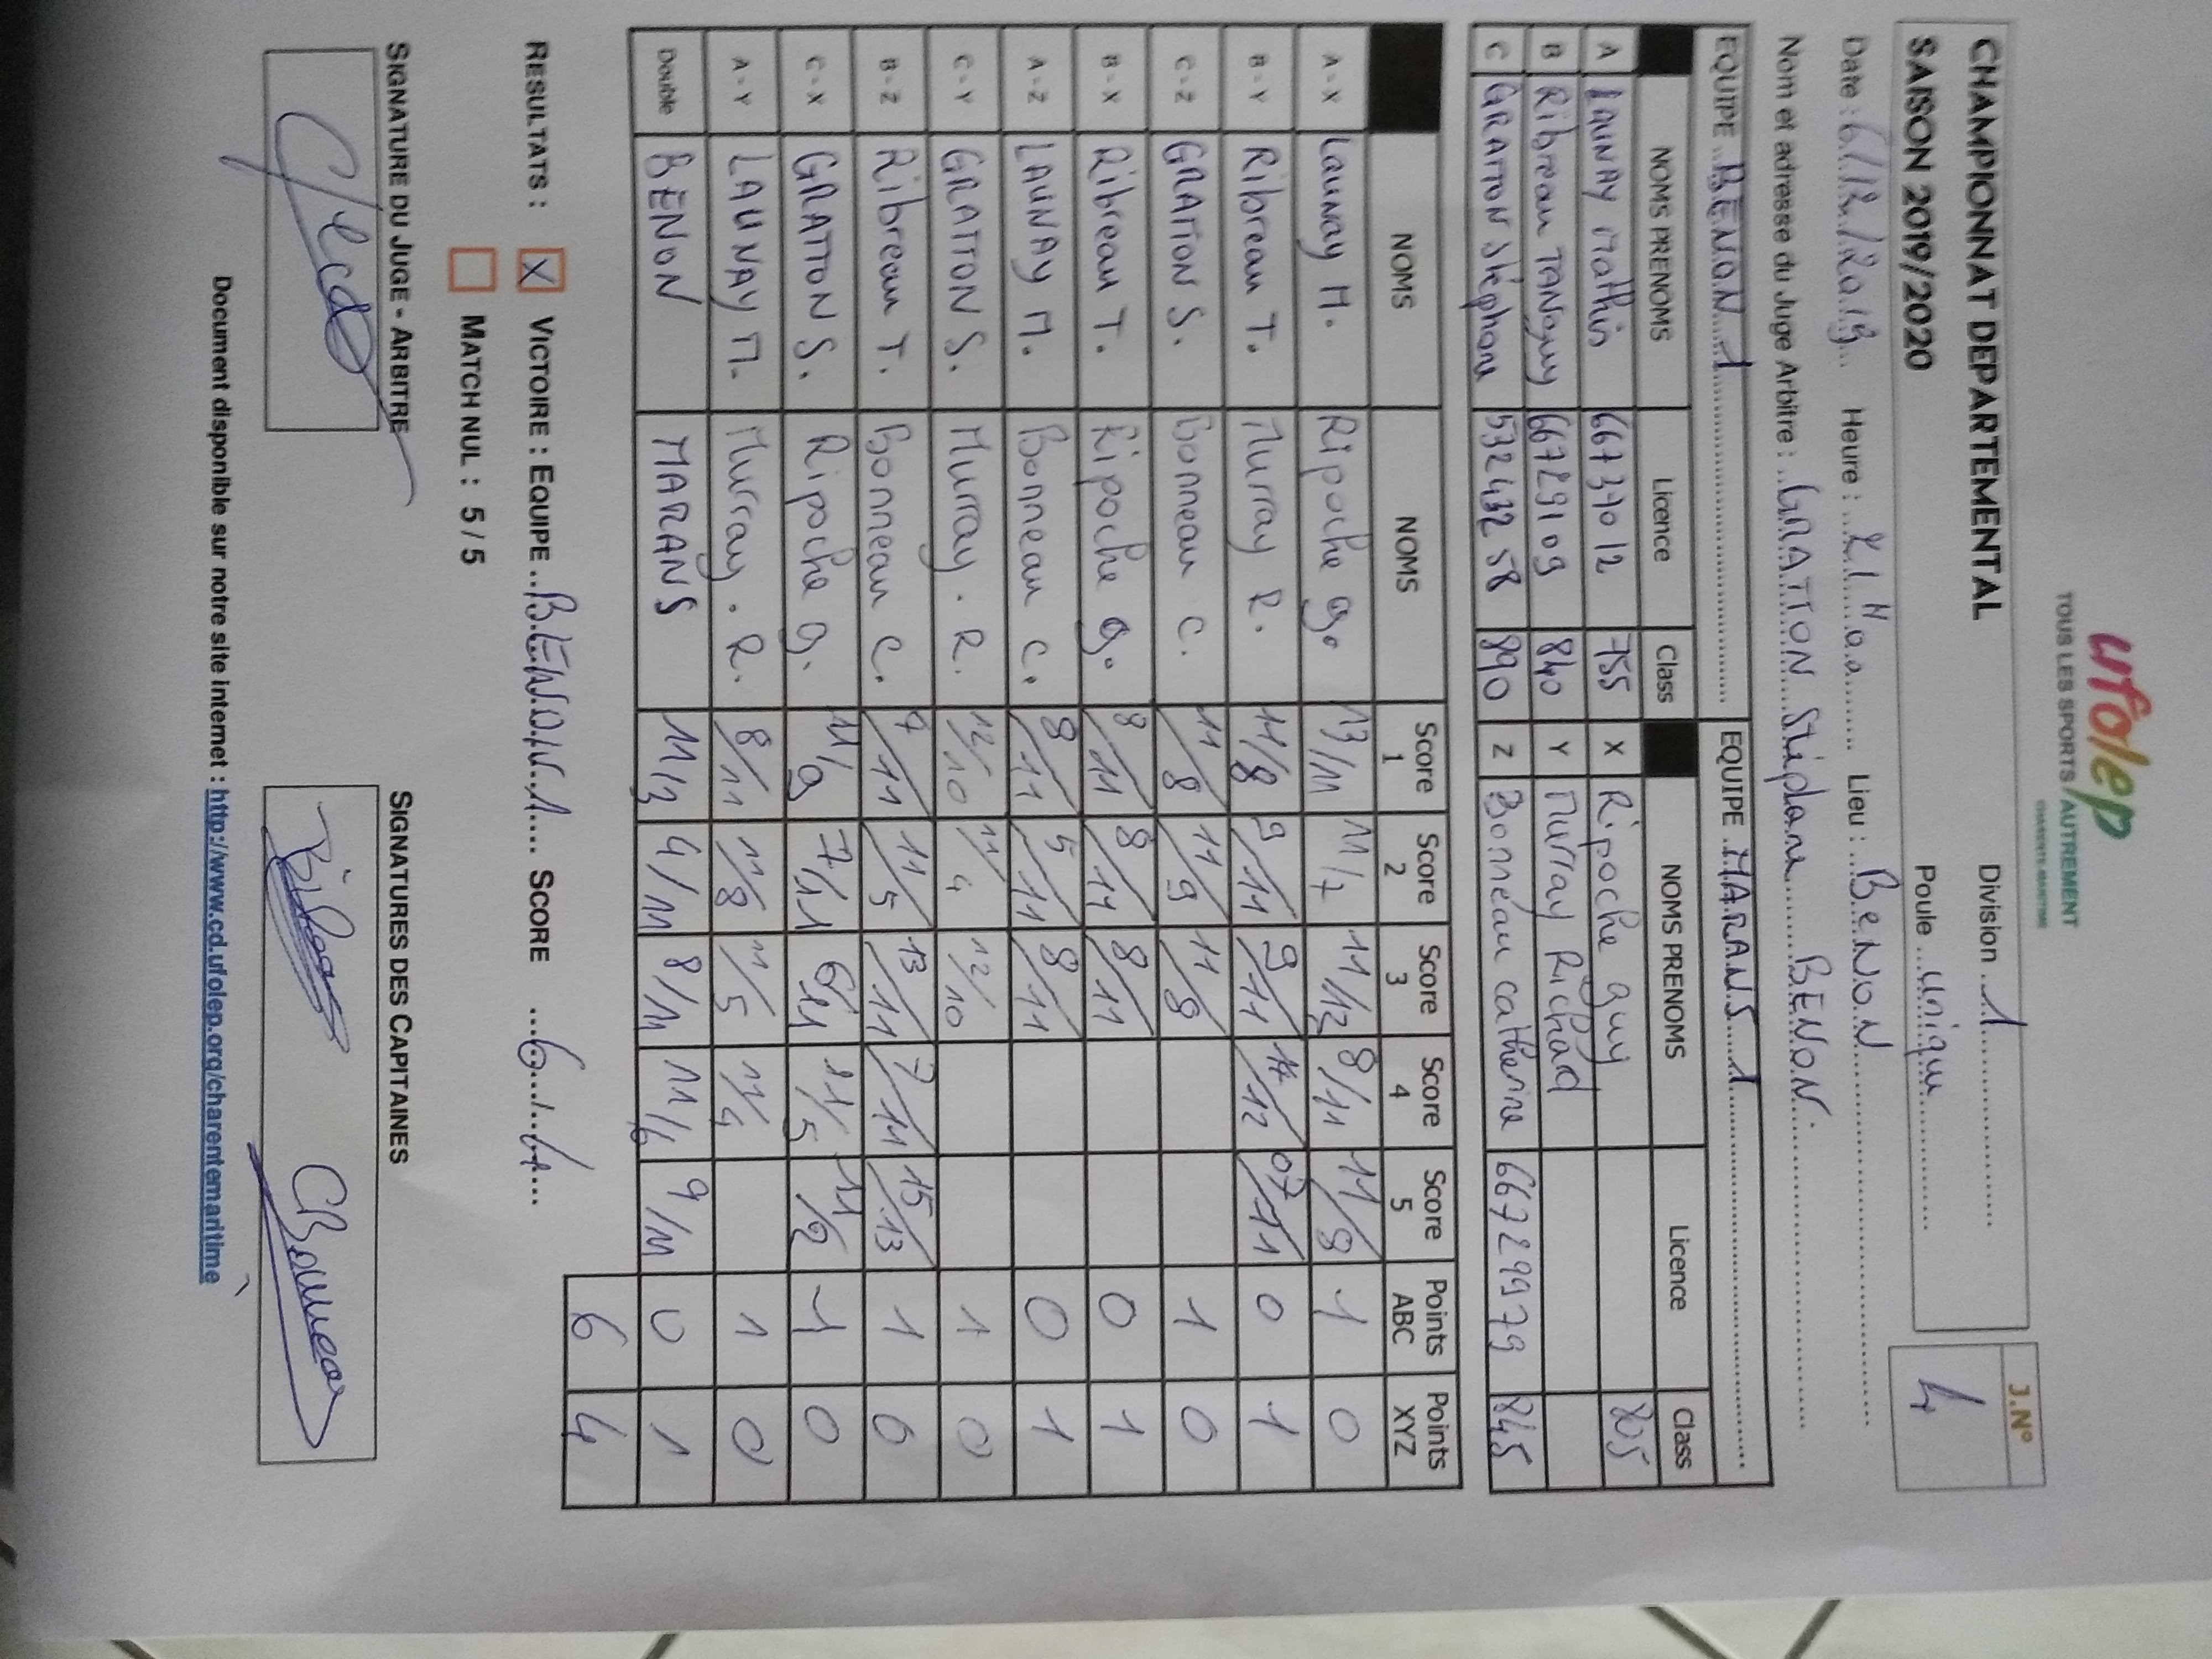 ufolep
TOUS LES SPORTS AUTREMENT
CHARENTE-MARITIME
CHAMPIONNAT DEPARTEMENTAL Division 1 J.N°
SAISON 2019/2020 Poule unique 4
Date : 6/12/2019 Heure : 21H00 Lieu : BeNoN
Nom et adresse du Juge Arbitre : GRATTON Stéplane BENON
EQUIPE BENON 1 EQUIPE MARANS 1
NOMS PRENOMS Licence Class NOMS PRENOMS Licence Class
A LAUNAY Mathis 66737012 755 X Ripoche guy 805
B Ribreau TANguy 66729109 840 Y Murray Richard
C GRATTON Stéphane 53243258 890 Z Bonneau catherine 66729979 845
NOMS NOMS Score 1 Score 2 Score 3 Score 4 Score 5 Points ABC Points XYZ
A - X Launay M. Ripoche g. 13/11 11/7 11/13 8/11 11/8 1 0
B - Y Ribreau T. Murray R. 11/8 9/11 9/11 14/12 07/11 0 1
C - Z GRATTON S. Bonneau C. 11/8 11/9 11/8 1 0
B - X Ribreau T. Ripoche g. 8/11 8/11 8/11 0 1
A - Z LAUNAY M. Bonneau C. 8/11 5/11 8/11 0 1
C - Y GRATTON S. Murray . R. 12/10 11/4 12/10 1 0
B - Z Ribreau T. Bonneau C. 7/11 11/5 13/11 7/11 15/13 1 0
C - X GRATTON S. Ripoche g. 11/9 7/11 6/11 11/5 11/2 1 0
A - Y LAUNAY M. Murray . R. 8/11 11/8 11/5 11/4 1 0
Double BENON MARANS 11/3 4/11 8/11 11/6 9/11 0 1
6 4
RESULTATS : X VICTOIRE : EQUIPE BENON 1 SCORE 6 / 4
MATCH NUL : 5 / 5
SIGNATURE DU JUGE - ARBITRE SIGNATURES DES CAPITAINES
CBonneau
Document disponible sur notre site internet : http://www.cd.ufolep.org/charentemaritime